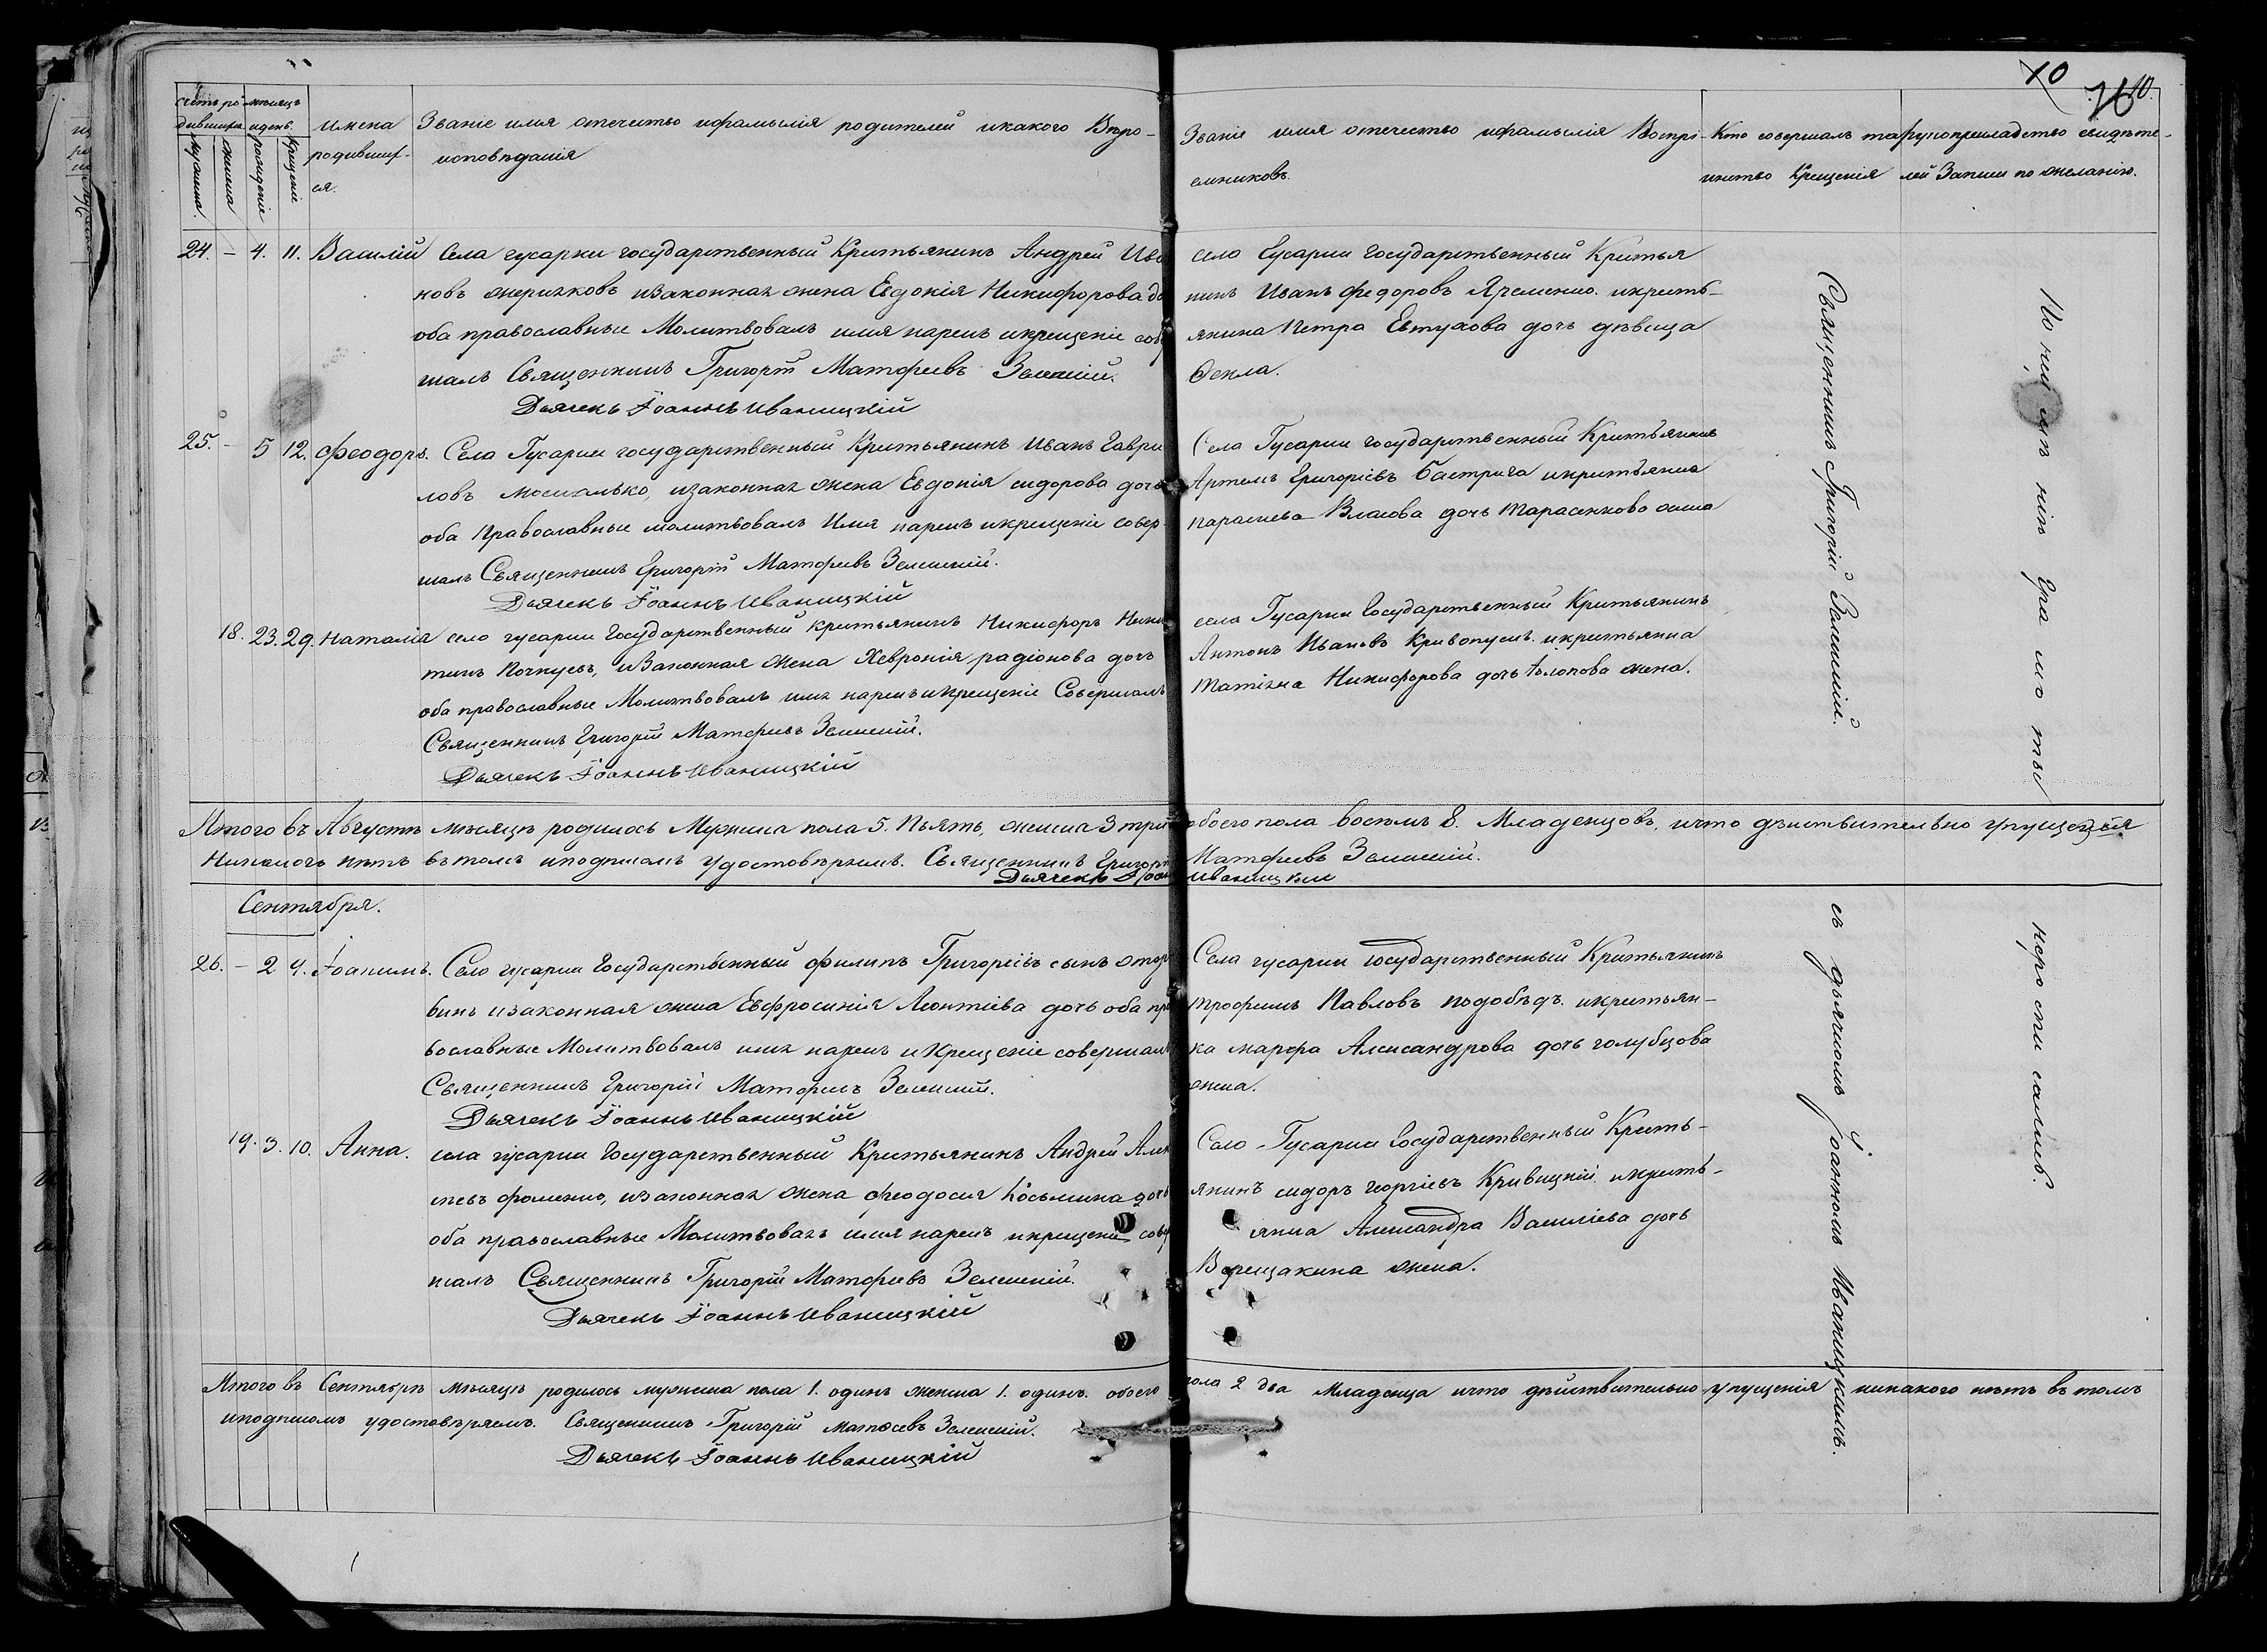 10
10.
счетъ ро-
дившихся.
мѣсяцъ
и день.
мужеска.
женска
рожденіе
крещеніе
имена
родивших-
ся.
Званіе имя отечество ифамылія родителей икакого Вѣро-
исповѣданія
Званіе имя отечество ифамылія Воспрі-
емниковъ.
Кто совершалъ та-
инство Крещенія
Рукоприкладство свидѣте-
лей Записи по желанію.
24. – 4. 11. Василій
Села гусарки государственный Крестьянинъ Андрей Ива
новъ изаконная жена Евдокія Никифорова до
оба православные Молитвовалъ имя нарекъ икрещеніе сов
шалъ Священникъ Григорій Матфеевъ Зеленскій.
Дьячекъ Іоаннъ Иваницкій
село Гусарки государственный Крестья
нинъ Иванъ Федоровъ Яременко. икресть-
янина Петра Евтухова дочь дѣвица
Ѳекла.
25. – 5 12. Феодоръ.
Села Гусарки государственный Крестьянинъ Иванъ Гаври
ловъ Москалько, изаконная жена Евдокія сидорова дочь
оба Православные молитвовалъ Имя нарекъ икрещеніе совер-
шалъ Священникъ Григорій Матфеевъ Зеленскій.
Дьячекъ Іоаннъ Иваницкій
Села Гусарки государственный Крестьянинъ
Артемъ Григоріевъ Бастрига икрестьянка
параскева Власова дочь Тарасенкова жена
18. 23. 29. Наталія
село гусарки Государственный крестьянинъ Никифоръ Ники
тинъ изаконная жена Хевронія радіонова дочь
оба православные Молитвовалъ имя нарекъ икрещеніе Совершалъ
Священникъ Григорій Матфеевъ Зеленскій.
Дьячекъ Іоаннъ Иваницкій
села Гусарки Государственный Крестьянинъ
Антонъ Ивановъ Кривопускъ. икрестьянка
Татіяна Никифорова дочь жена.
Итого въ Августѣ мѣсяцѣ родилось Мужска пола 5. Пьять, женска 3 три обоего пола восемъ 8. Младенцовъ, ичто дѣиствительно упущенія
Никакогъ нѣтъ втомъ иподписомъ Удостовѣряемъ. Священникъ Григорій Матфеевъ Зеленскій.
Дьячекъ Іоан Иваницкій
Сентября.
26. – 2 4. Іоакимъ.
Село гусарки Государственный Филипъ Григоріевъ сынъ
бинъ изаконная жена Евфросинія Леонтіева дочь оба пра
вославные Молитвовалъ имя нарекъ и Крещеніе совершалъ
Священникъ Григорій Матфеевъ Зеленскій.
Дьячекъ Іоаннъ Иваницкій
Села гусарки Государственный Крестьянинъ
Трофимъ Павловъ подобѣдъ. икрестьян-
ка марфа Александрова дочь голубцова
жена.
19. 3. 10. Анна.
села гусарки Государственный Крестьянинъ Андрей Алек
сѣевъ фоменко, изаконная жена феодосія Косьмина дочь
оба православные Молитвовалъ имя нарекъ икрещеніе сове
шалъ Священникъ Григорій Матфеевъ Зеленскій.
Дьячекъ Іоаннъ Иваницкій
Село Гусарки Государственный Кресть-
янинъ сидоръ георгіевъ Кривицкій. икресть-
янка Александра Василіева дочь
Верещакина жена.
Священникъ Григорій Зеленскій.
съ дьячкомъ Іоанномъ Иваницкимъ.
По неимѣнію Грамоты
Итого въ Сентябрѣ мѣсяцѣ родилось мужеска пола 1. одинъ женска 1. одинъ. обоего пола 2 два Младенца ичто дѣйствительно упущенія никакого нѣтъ втомъ
иподписомъ удостовѣряемъ. Священникъ Григорій матѳеевъ Зеленскій.
Дьячекъ Іоаннъ Иваницкій